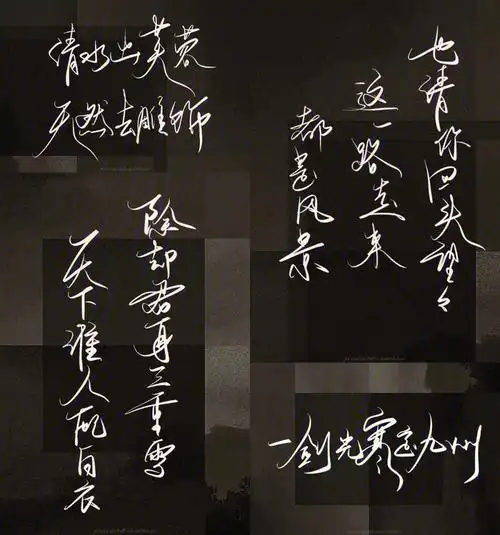 清水出芙蓉
天然去雕饰
也请你回头望々
这一路走来
都是风景
除却君身三重雪
天下谁人配白衣
一剑光寒定九州